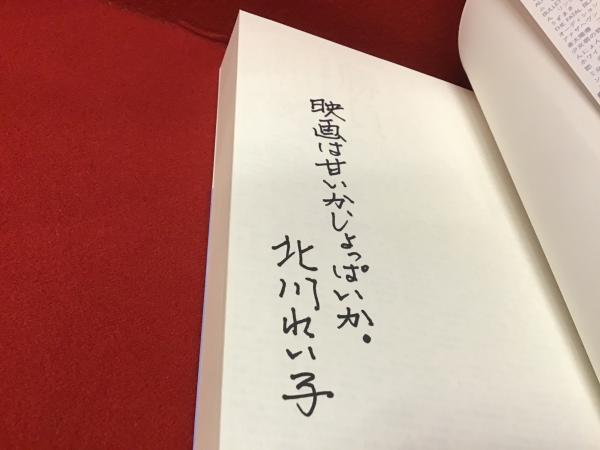 映画は甘いか、しょっぱいか。
北川れい子